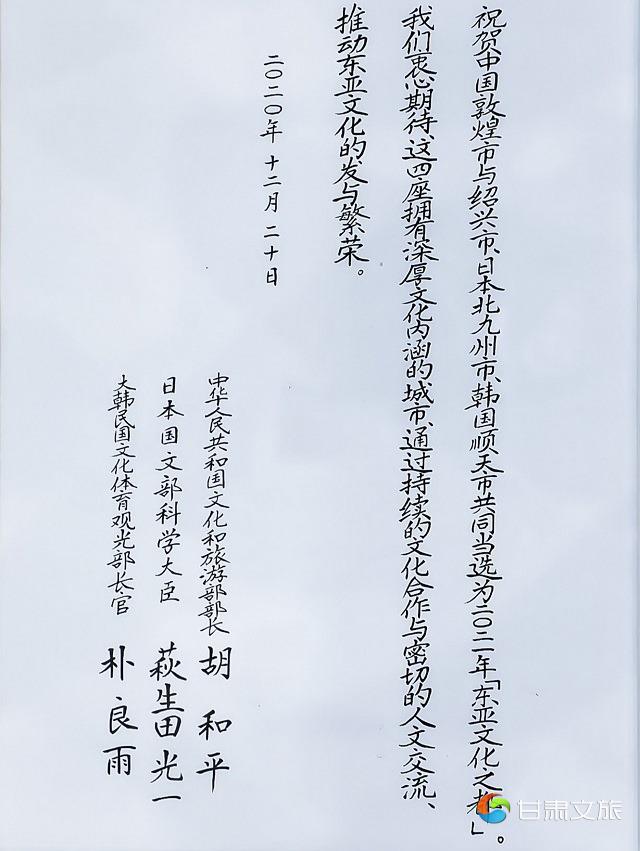 祝贺中国敦煌市与绍兴市、日本北九州市、韩国顺天市共同当选为二〇二一年「东亚文化之都」。
我们衷心期待、这四座拥有深厚文化内涵的城市、通过持续的文化合作与密切的人文交流、
推动东亚文化的发与繁荣。
二〇二〇年 十二月 二十日
中华人民共和国文化和旅游部部长 胡和平
日本国文部科学大臣 萩生田光一
大韩民国文化体育观光部长官 朴良雨
甘肃文旅